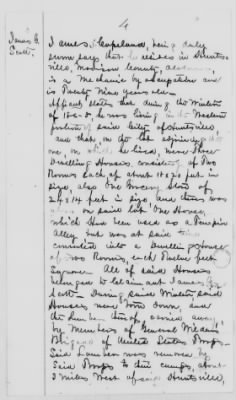 4
James H.
Scott.
James Copeland, being duly
sworn says that he resides in Hunts-
ville, Madison County, Alabama,
is a Mechanic by occupation and
is Twenty Nine years old.
Affiant states that during the Winter
of he was living in the Western
portion of said City of Huntsville,
and that, on the lot adjoining the
one, on which he lived, were Three
Dwelling Houses, consisting of Two
Rooms each of about 18 x 20 feet in
size, also One Grocery Store of
24 x 14 feet in size, and there was
also on said lot One House,
which Had been used as a Tenpin
Alley but was at said time
converted into a Dwelling House
of Two Rooms, each Twelve feet
Square. All of said Houses
belonged to Claimant James H.
Scott. During said Winter said
Houses were torn down and
the Lumber thereof carried away
by Members of General
Brigade of United States Troops.
Said Lumber was removed by
Said Troops to their Camps, about
2 miles West of said Huntsville,